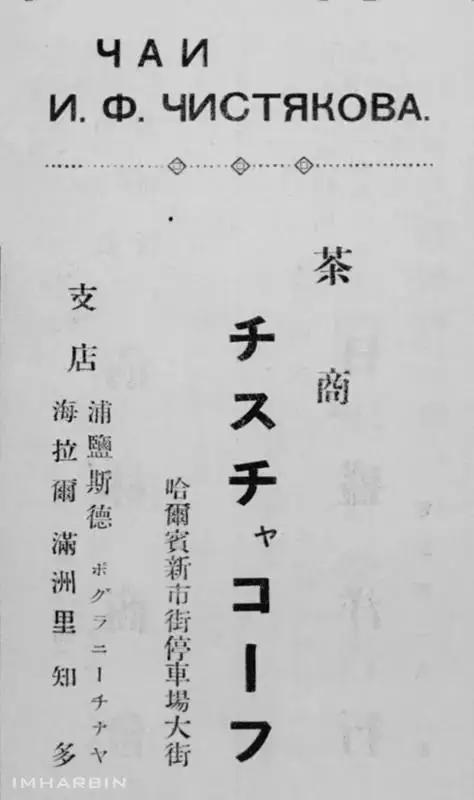 ЧАИ
И. Ф. ЧИСТЯКОВА.
茶商
チスチャコーフ
哈爾賓新市街停車場大街
支店
浦鹽斯德 ポグラニーチナヤ
海拉爾 滿洲里 知多
IMHARBIN